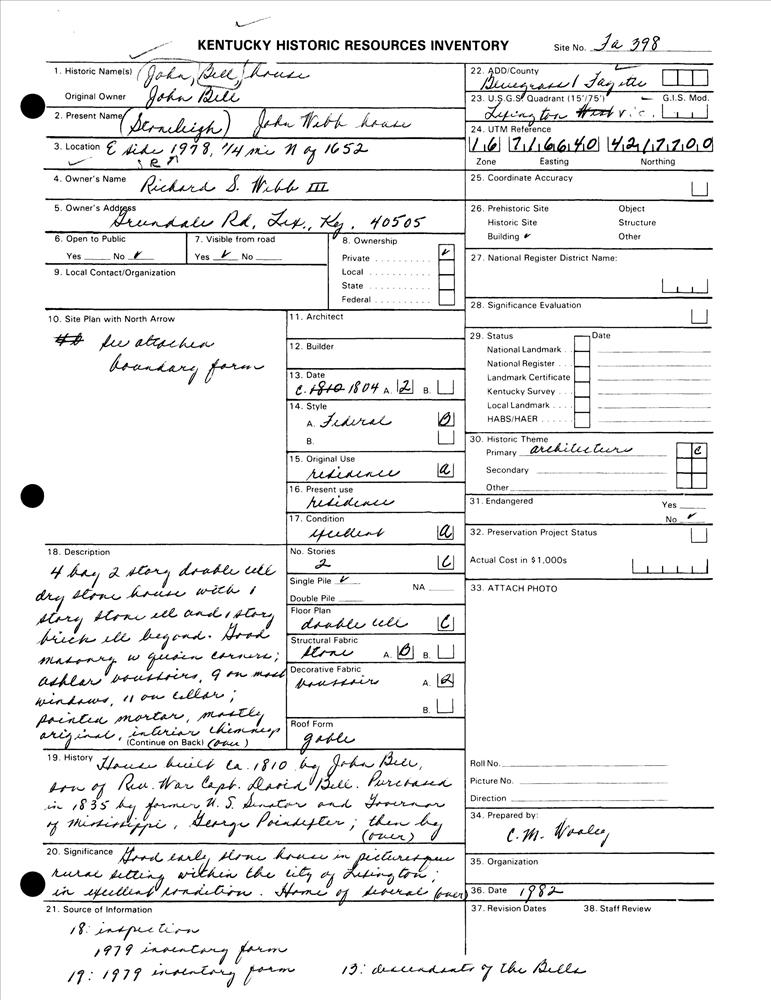 KENTUCKY HISTORIC RESOURCES INVENTORY
Site No. Fa 398
1. Historic Name(s) John, Bell, house
Original Owner John Bell
2. Present Name (Stoneleigh) John Webb house
3. Location E side 1978, 1/4 mi N of 1652
4. Owner's Name Richard S. Webb III
5. Owner's Address Greendale Rd, Lex., Ky. 40505
6. Open to Public
Yes No ✓
7. Visible from road
Yes ✓ No
8. Ownership
Private ✓
Local
State
Federal
9. Local Contact/Organization
10. Site Plan with North Arrow
See attached
boundary form
11. Architect
12. Builder
13. Date
c. 1810 1804 A. 2 B.
14. Style
A. Federal B
B.
15. Original Use
residence a
16. Present use
residence
17. Condition
excellent a
18. Description
4 bay 2 story double cell
dry stone house with 1
story stone ell and 1 story
brick ell beyond. Good
masonry w quoin corners;
ashlar voussoirs, 9 on most
windows, 11 on cellar;
pointed mortar, mostly
original, interior chimneys
(Continue on Back) (over)
No. Stories
2 C
Single Pile ✓
NA
Double Pile
Floor Plan
double cell C
Structural Fabric
stone A. B B.
Decorative Fabric
voussoirs A. 2
B.
Roof Form
gable
19. History House built ca. 1810 by John Bell,
son of Rev. War Capt. David Bell. Purchased
in 1835 by former U.S. Senator and Governor
of Mississippi, George Poindexter; then by
(over)
20. Significance Good early stone house in picturesque
rural setting within the city of Lexington;
in excellent condition. Home of several (over)
21. Source of Information
18: inspection
1979 inventory form
19: 1979 inventory form 13: descendants of the Bells
22. ADD/County
Bluegrass/ Fayette
23. U.S.G.S. Quadrant (15'/75') G.I.S. Mod.
Lexington West
24. UTM Reference
16 716640 4217700
Zone Easting Northing
25. Coordinate Accuracy
26. Prehistoric Site Object
Historic Site Structure
Building ✓ Other
27. National Register District Name:
28. Significance Evaluation
29. Status Date
National Landmark
National Register
Landmark Certificate
Kentucky Survey
Local Landmark
HABS/HAER
30. Historic Theme
Primary architecture C
Secondary
Other
31. Endangered Yes
No ✓
32. Preservation Project Status
Actual Cost in $1,000s
33. ATTACH PHOTO
Roll No.
Picture No.
Direction
34. Prepared by:
C. M. Wooley
35. Organization
36. Date 1982
37. Revision Dates 38. Staff Review